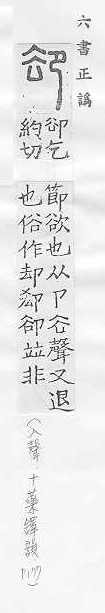 六書正譌
卻
卻乞
約切
節欲也从卩谷聲又退
也俗作却卻竝非
(入聲 十藥鐸韻)